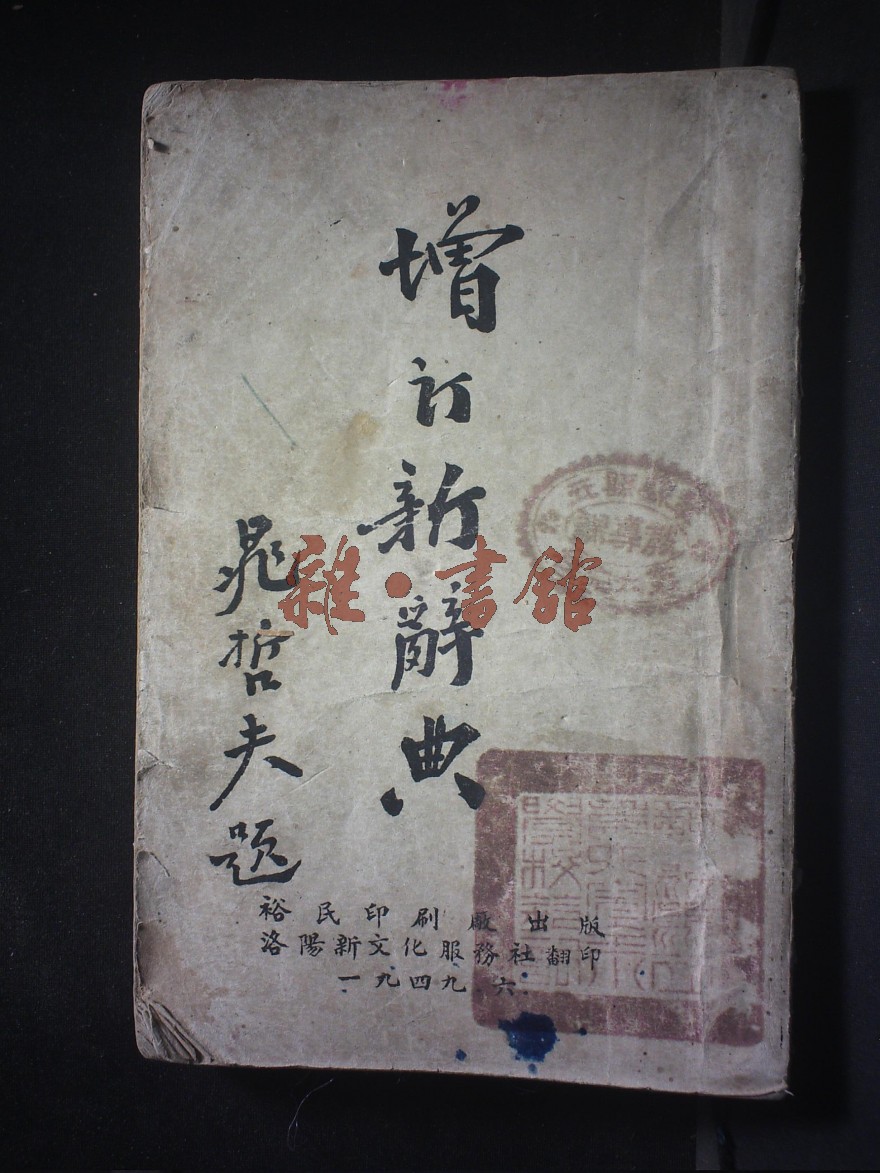 增訂新辭典
晁哲夫題
裕民印刷廠出版
洛陽新文化服務社翻印
一九四九·六·
雜·書館